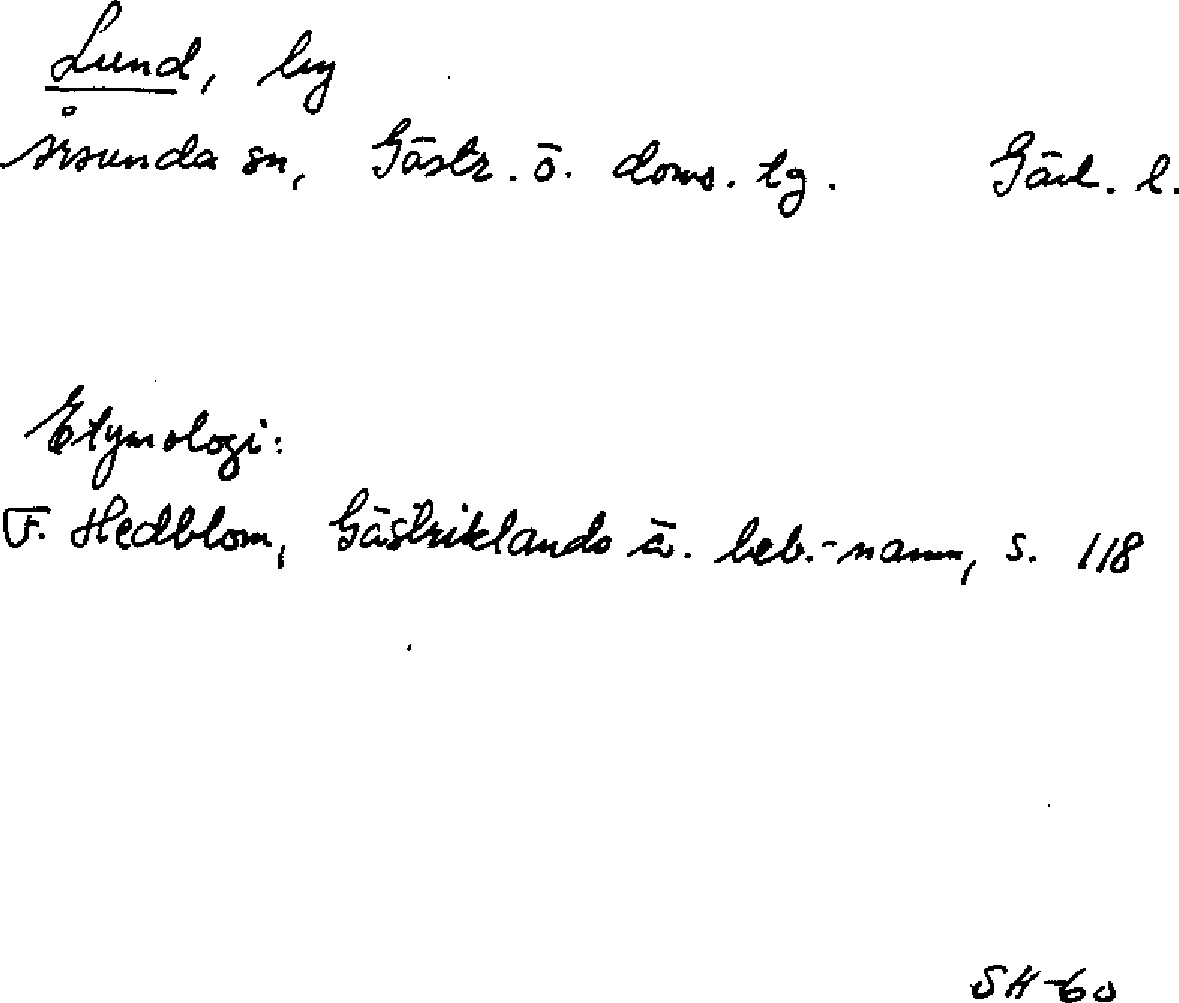 Lund, by
Årsunda sn, Gästr. ö. doms. tg. Gävl. l.
Etymologi:
F. Hedblom, Gästriklands ä. beb.-namn, s. 118
SH-60